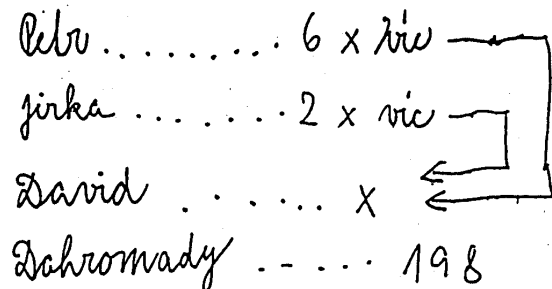 Petr ......... 6 x víc
Jirka ....... 2 x víc
David ...... x
Dohromady ..... 198